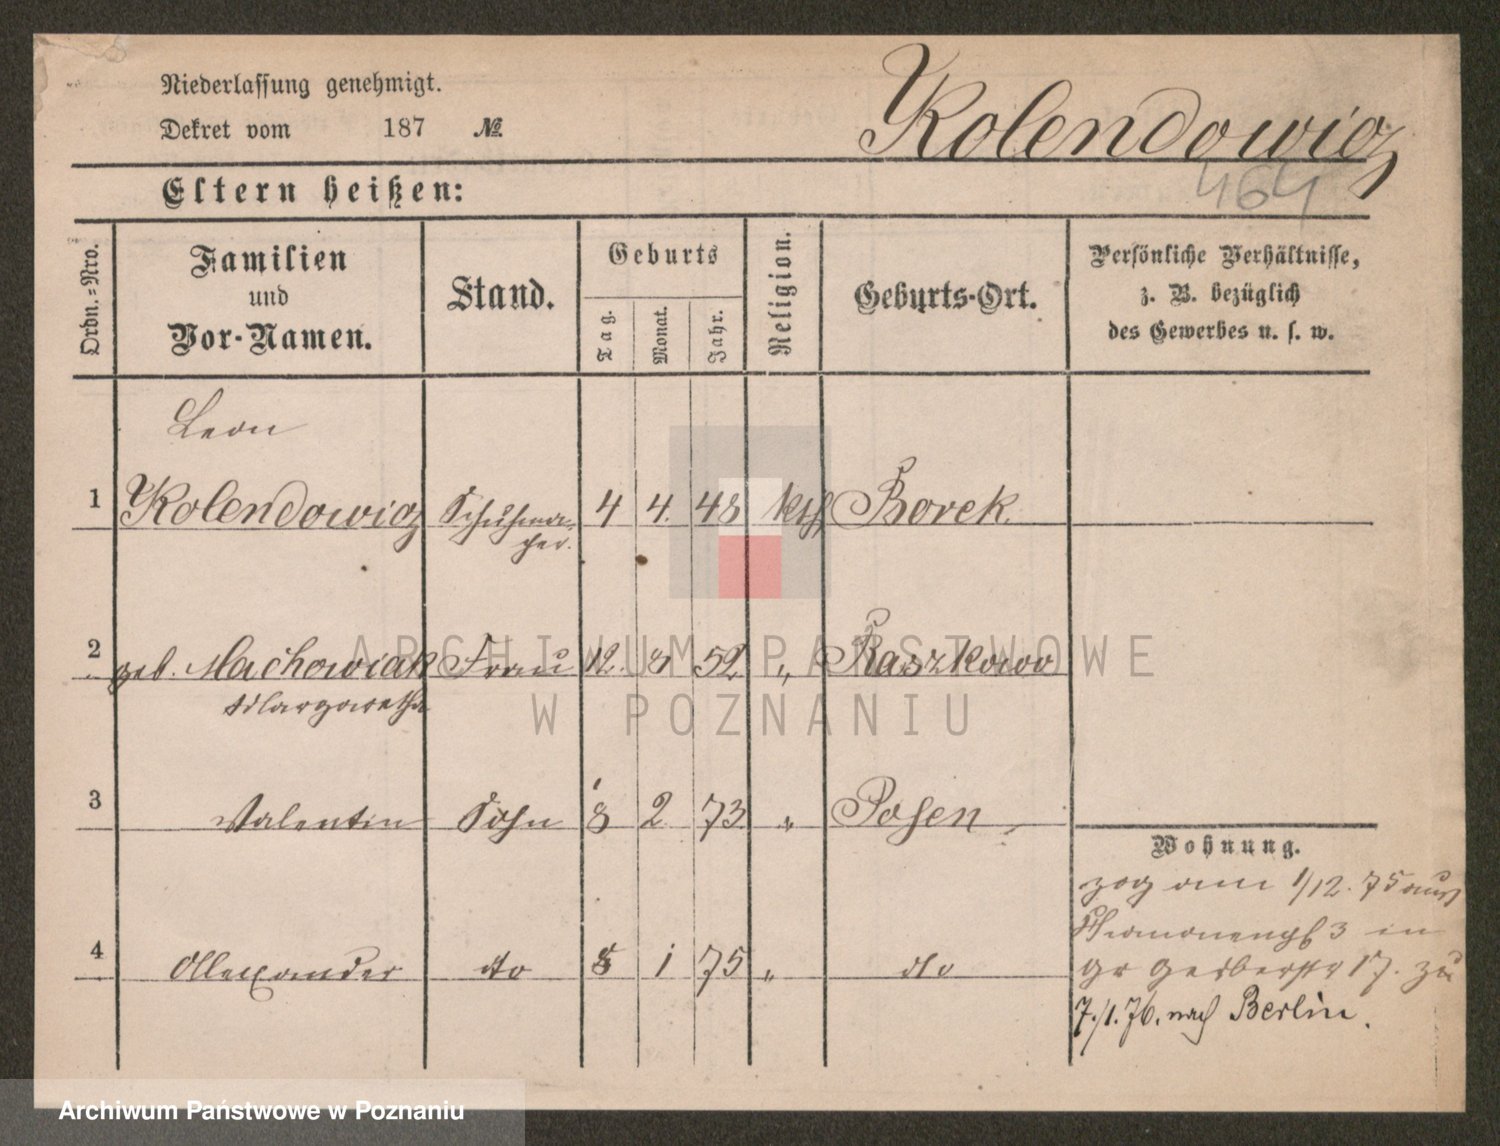 Niederlassung genehmigt.
Dekret vom 187 №
Kolendowicz
464
Eltern heißen:
Ordn.-Nro.
Familien
und
Vor-Namen.
Stand.
Geburts
Tag.
Monat.
Jahr.
Religion.
Geburts-Ort.
Persönliche Verhältnisse,
z. B. bezüglich
des Gewerbes u. s. w.
Leon
1 Kolendowicz Schuhma- 4 4. 48 kth Borek
cher.
2 geb. Machowiak Frau 12. 8 52 „ Raszkowo
Margaretha
3 Valentin Sohn 8 2 73 „ Posen
4 Allexander dto 8 1 75 „ dto
Wohnung.
zog am 1/12. 75 aus
3 in
gr Gerberstr 17. zu
7./1. 76. nach Berlin.
ARCHIWUM PAŃSTWOWE
W POZNANIU
Archiwum Państwowe w Poznaniu